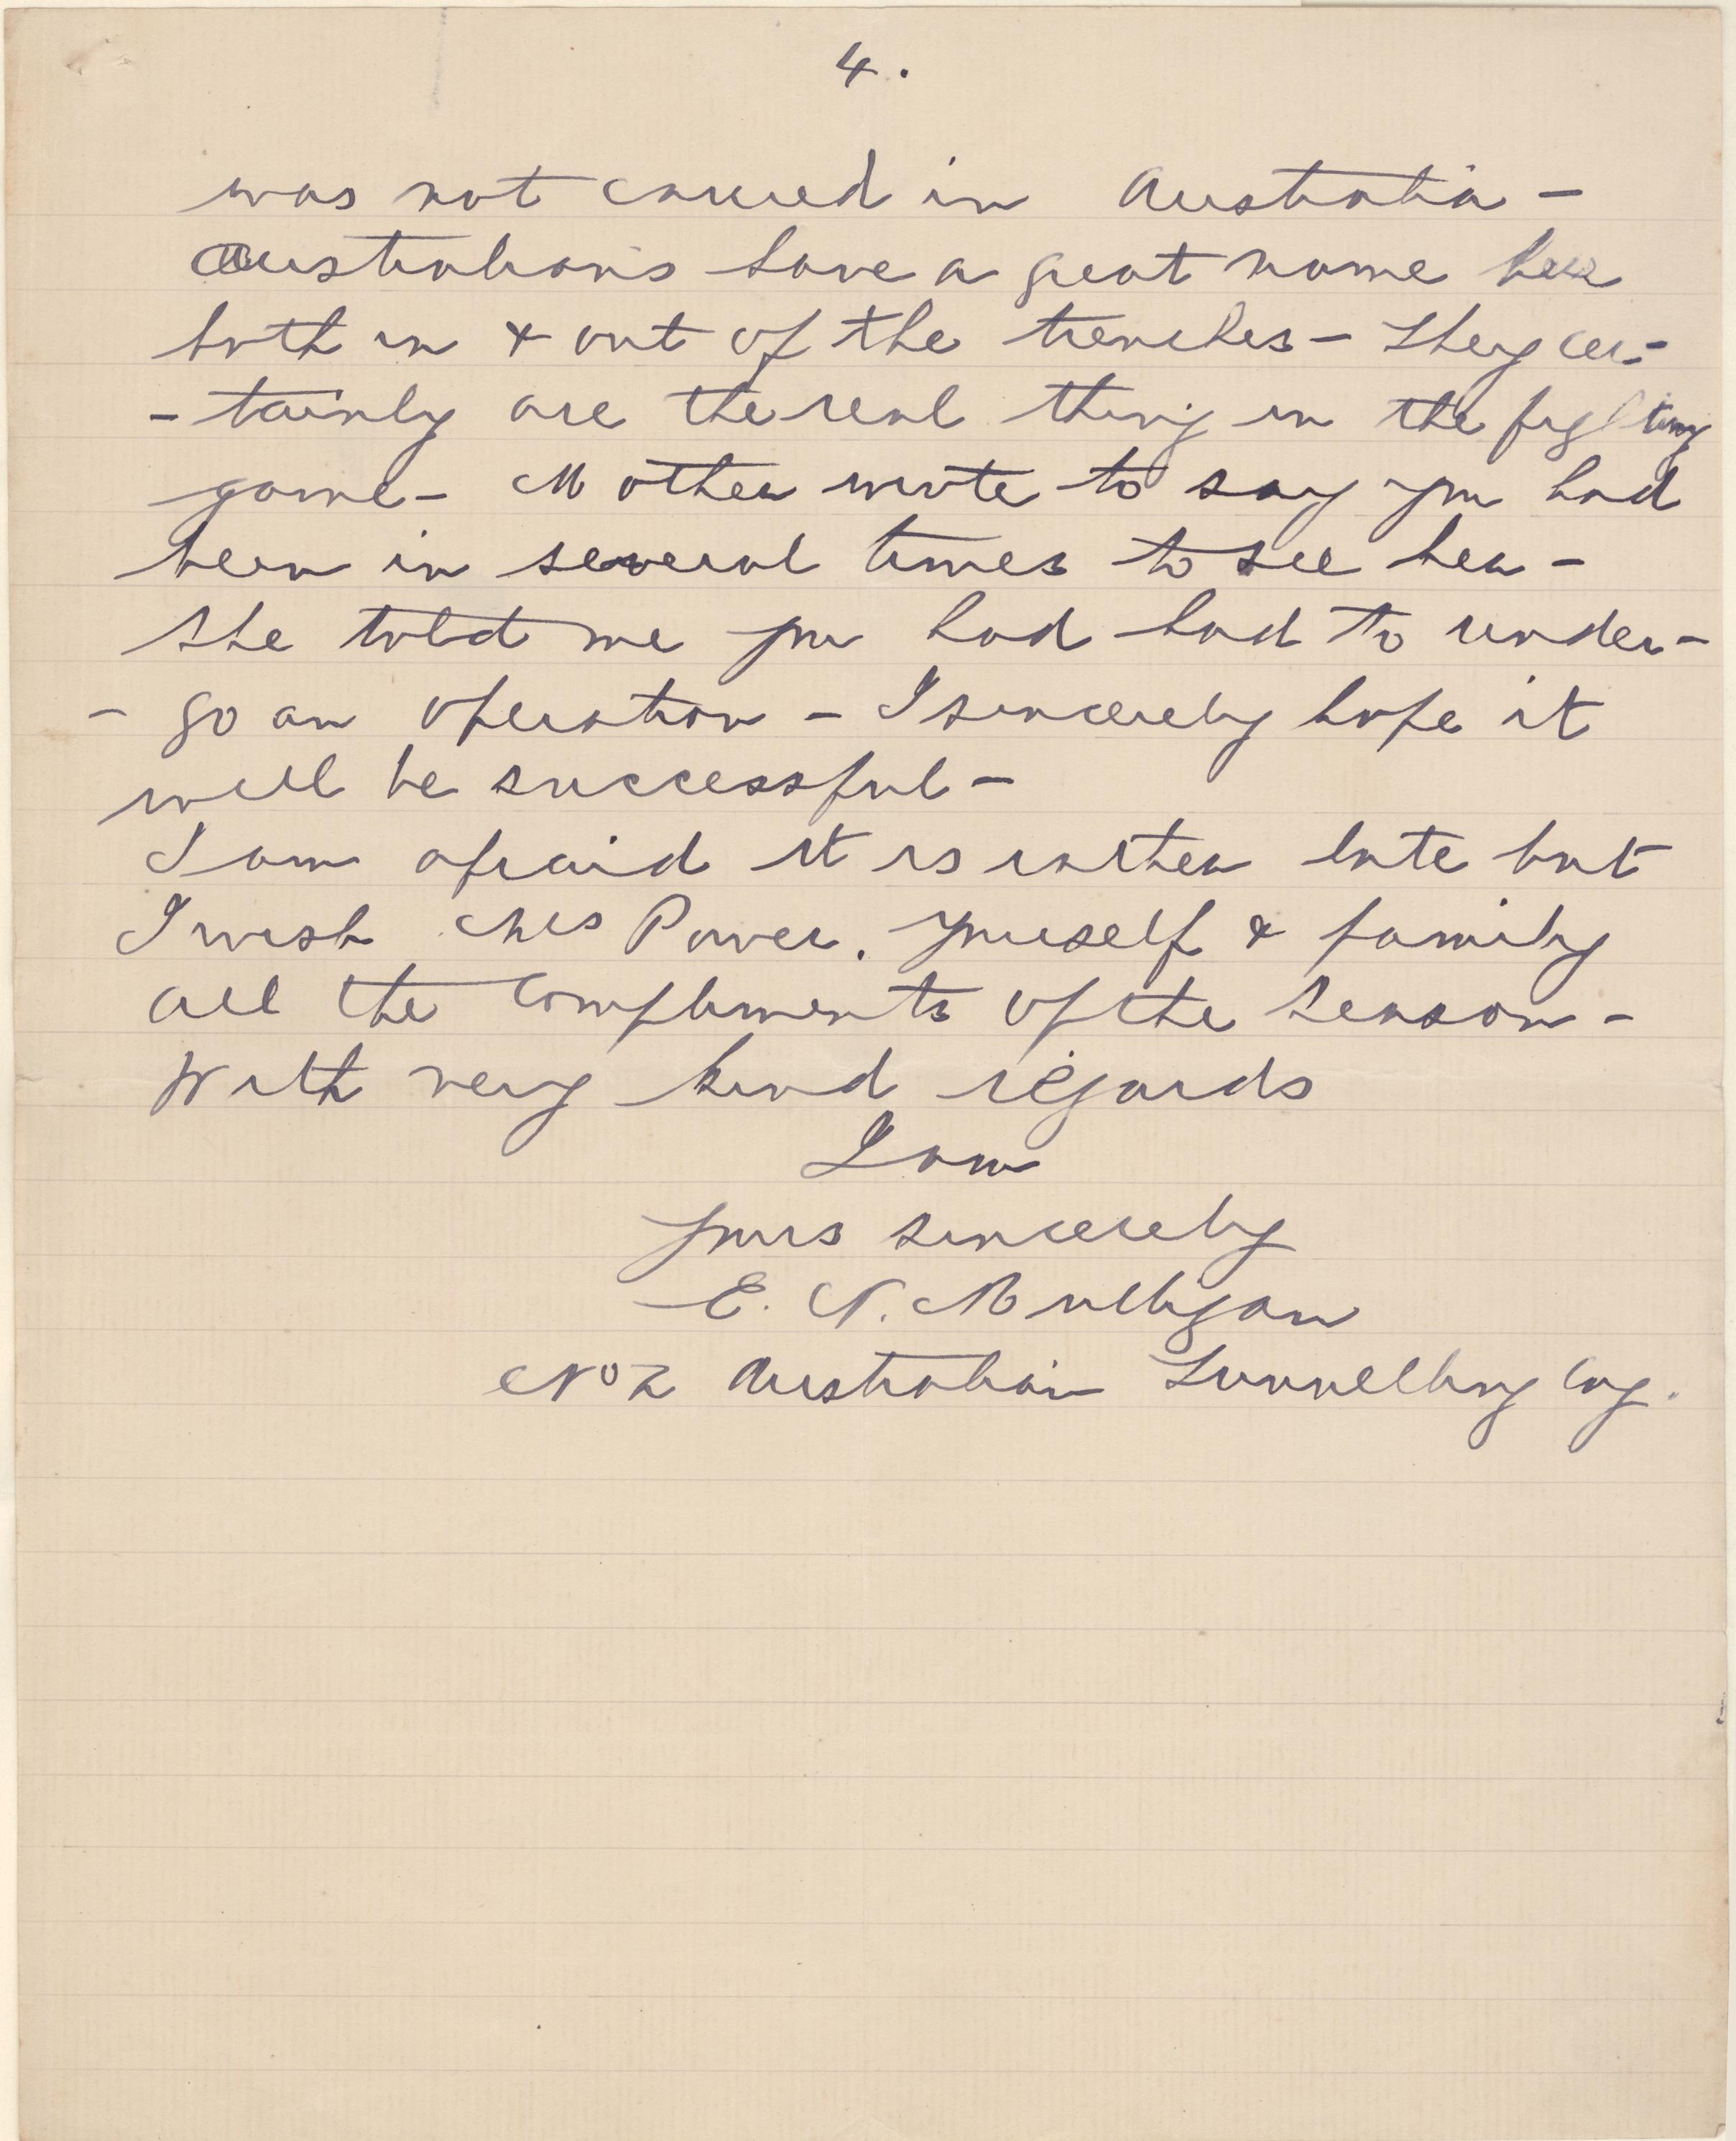 4.
was not carried in Australia -
Australians have a great name here
both in & out of the trenches - They cer-
- tainly are the real thing in the fighting
game - Mother wrote to say you had
been in several times to see her -
She told me you had had to under-
- go an operation - I sincerely hope it
will be successful -
I am afraid it is rather late but
I wish Mrs Power, yourself & family
all the Compliments of the Season -
With very kind regards
I am
yours sincerely
E. N. Mulligan
No 2 Australian Tunnelling Coy.